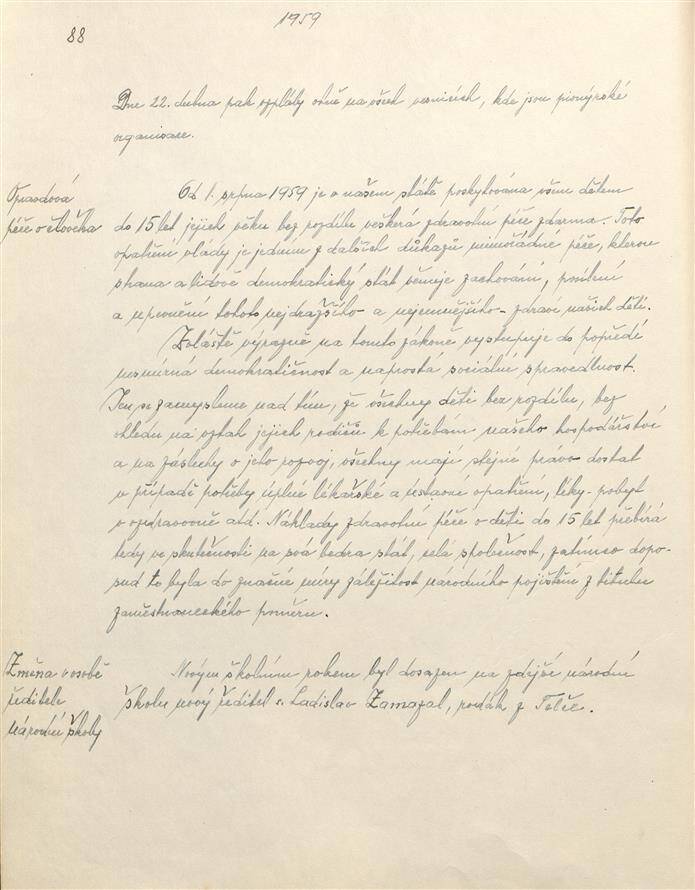 1959
88
Dne 22. dubna pak vzplály ohně na všech vesnicích, kde jsou pionýrské
organisace.
Opravdová
péče o člověka
Od 1. srpna 1959 je v našem státě poskytována všem dětem
do 15 let jejich věku bez rozdílu veškerá zdravotní péče zdarma. Toto
opatření vlády je jedním z dalších důkazů mimořádné péče, kterou
strana a lidově demokratický stát věnuje zachování, posílení
a upevnění tohoto nejdražšího a nejcennějšího - zdraví našich dětí.
Zvláště výrazně na tomto zákoně vystupuje do popředí
nesmírná demokratičnost a naprostá sociální spravedlnost.
Jen se zamysleme nad tím, že všechny děti bez rozdílu, bez
ohledu na vztah jejich rodičů k potřebám našeho hospodářství
a na zásluhy o jeho rozvoj, všechny mají stejné právo dostat
v případě potřeby úplné lékařské a ústavní opatření, léky - pobyt
v ozdravovně atd. Náklady zdravotní péče o děti do 15 let přebírá
tedy ve skutečnosti na svá bedra stát, celá společnost, zatímco dopo-
sud to byla do značné míry záležitost národního pojištění z titulu
zaměstnaneckého poměru.
Změna v osobě
ředitele
národní školy
Novým školním rokem byl dosazen na zdejší národní
školu nový ředitel s. Ladislav Zamazal, rodák z Telče.